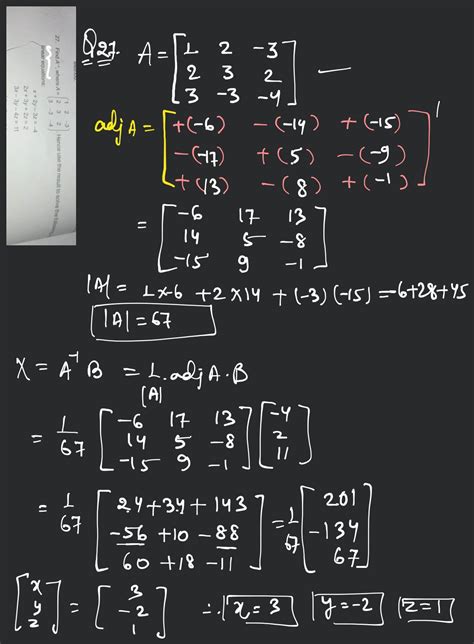 27. Find A⁻¹, where A = [1 2 -3; 2 3 2; 3 -3 -4]. Hence use this result to solve the following
x + 2y - 3z = -4
2x + 3y + 2z = 2
3x - 3y - 4z = 11
Q27. A = [1 2 -3
2 3 2
3 -3 -4]
adj A = [+(-6) -(-14) +(-15)
-(-17) +(5) -(-9)
+(13) -(8) +(-1)]'
= [-6 17 13
14 5 -8
-15 9 -1]
|A| = 1×-6 + 2×14 + (-3)(-15) = -6+28+45
|A| = 67
X = A⁻¹B = 1/|A| . adj A . B
= 1/67 [-6 17 13
14 5 -8
-15 9 -1] [-4
2
11]
= 1/67 [24+34+143
-56+10-88
60+18-11] = 1/67 [201
-134
67]
[x
y
z] = [3
-2
1] ∴ x=3 y=-2 z=1